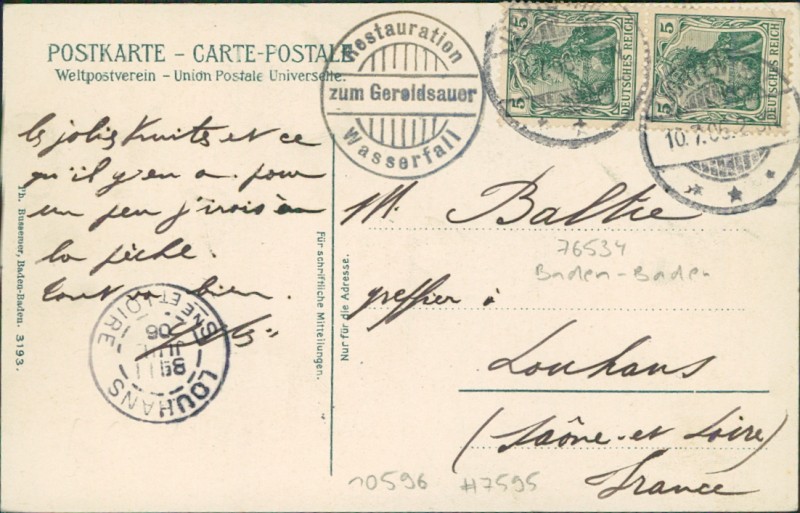 POSTKARTE – CARTE-POSTALE
Weltpostverein – Union Postale Universelle.
Restauration
zum Geroldsauer
Wasserfall
5 5
DEUTSCHES REICH
5 5
DEUTSCHES REICH
10.7.06.
les jolis fruits et ce
qu'il y en a. pour
un peu j'irais à
la pêche.
tout va bien.
Ph. Bussemer, Baden-Baden. 3193.
Für schriftliche Mitteilungen.
Nur für die Adresse.
M. Baltie
76534
Baden-Baden
greffier à
Louhans
(Saône-et-Loire)
France
LOUHANS
SNE ET LOIRE
JUIL
06
10596 #7595